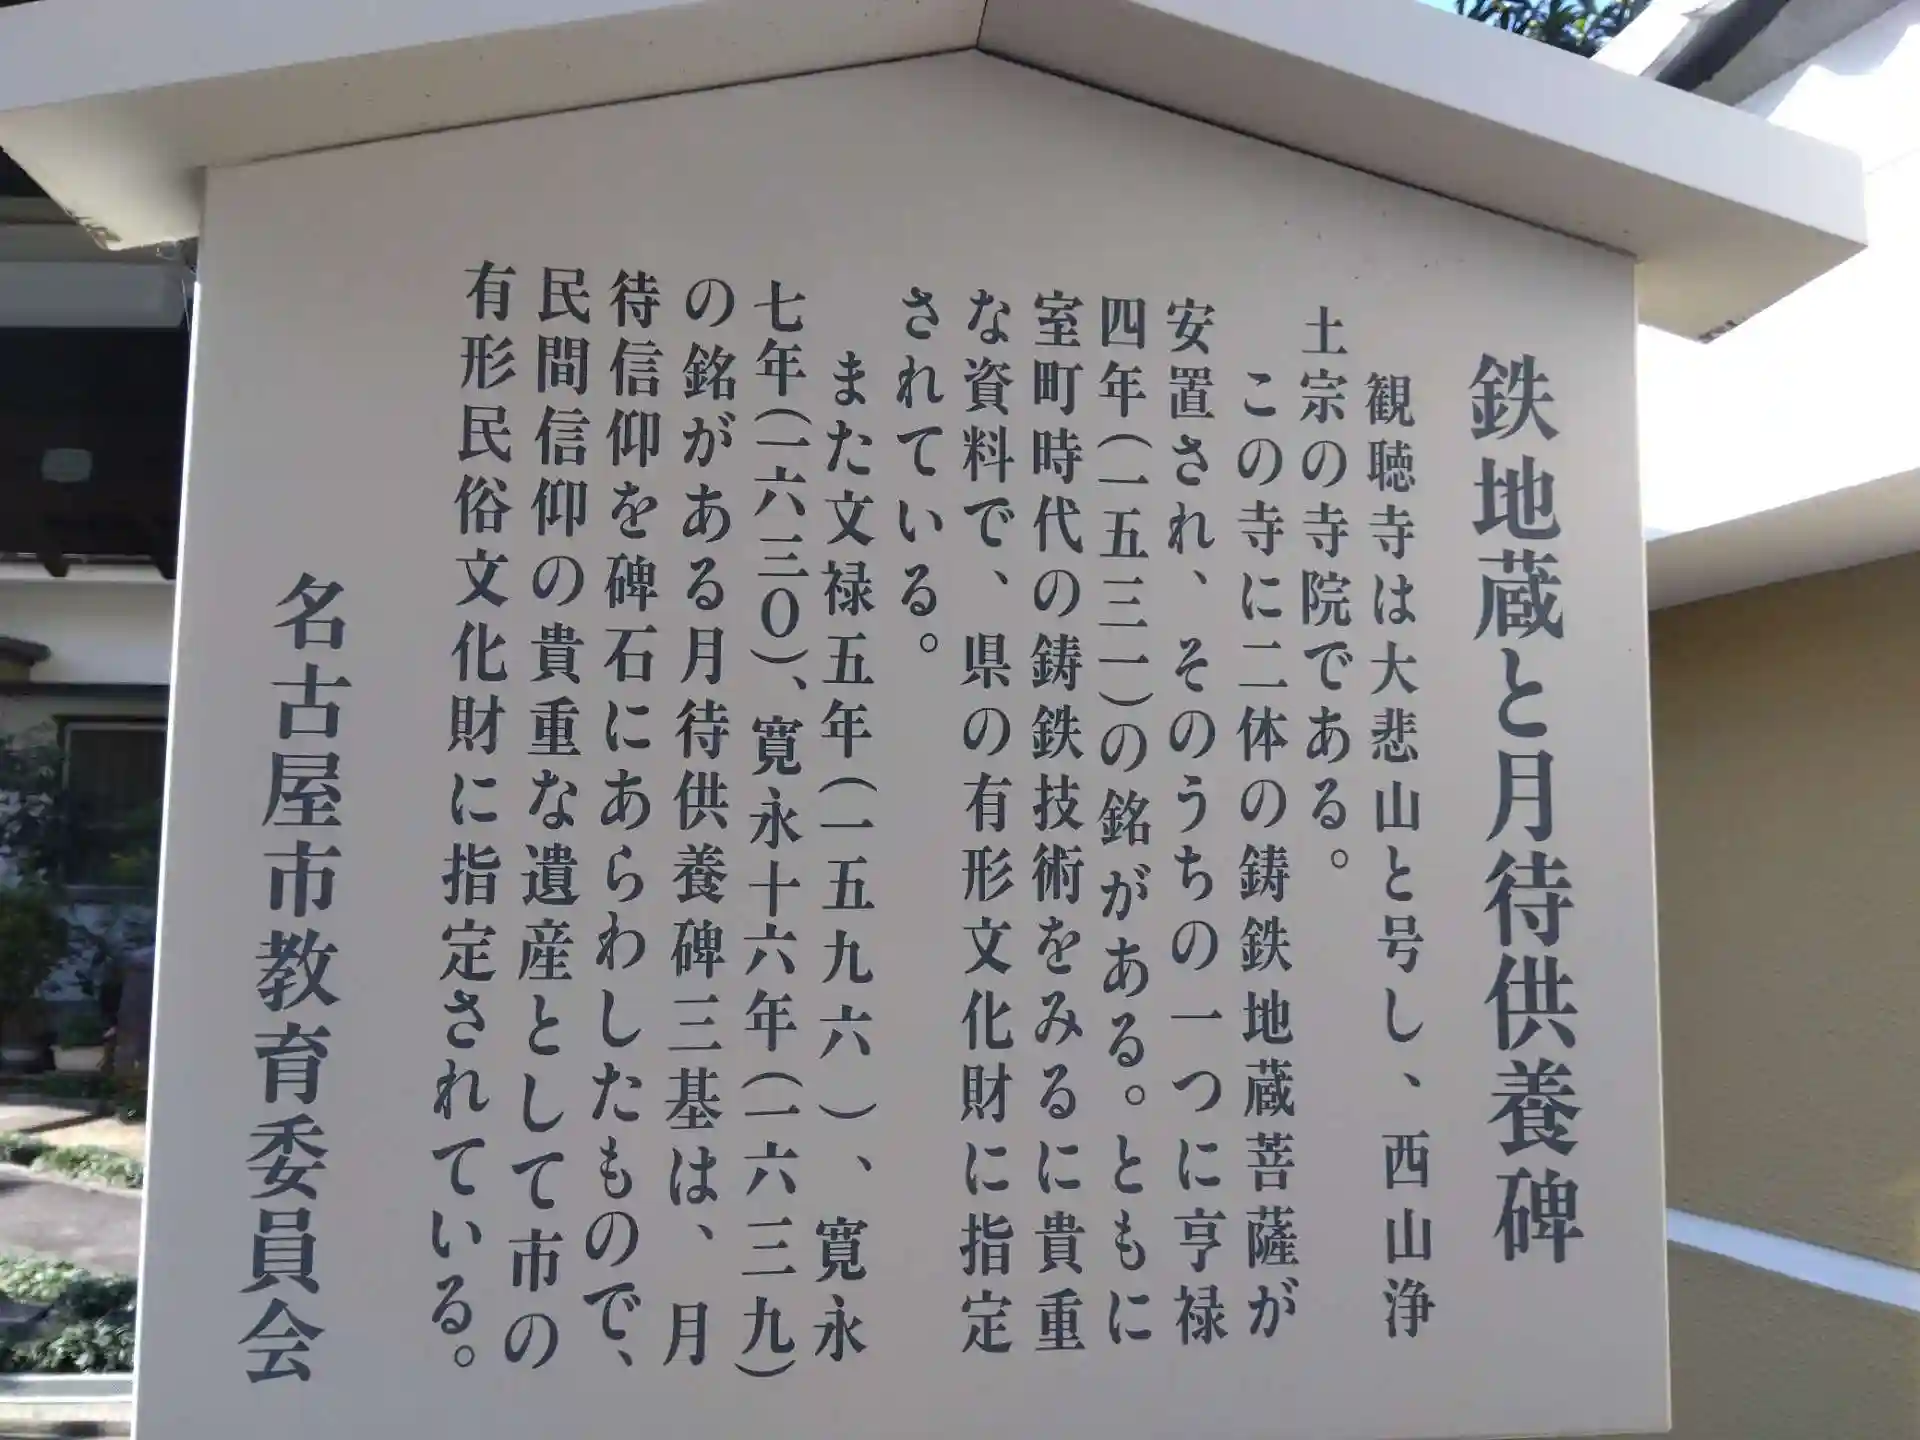 鉄地蔵と月待供養碑
観聴寺は大悲山と号し、西山浄
土宗の寺院である。
この寺に二体の鋳鉄地蔵菩薩が
安置され、そのうちの一つに亨禄
四年（一五三一）の銘がある。ともに
室町時代の鋳鉄技術をみるに貴重
な資料で、県の有形文化財に指定
されている。
また文禄五年（一五九六）、寛永
七年（一六三〇）、寛永十六年（一六三九）
の銘がある月待供養碑三基は、月
待信仰を碑石にあらわしたもので、
民間信仰の貴重な遺産として市の
有形民俗文化財に指定されている。
名古屋市教育委員会